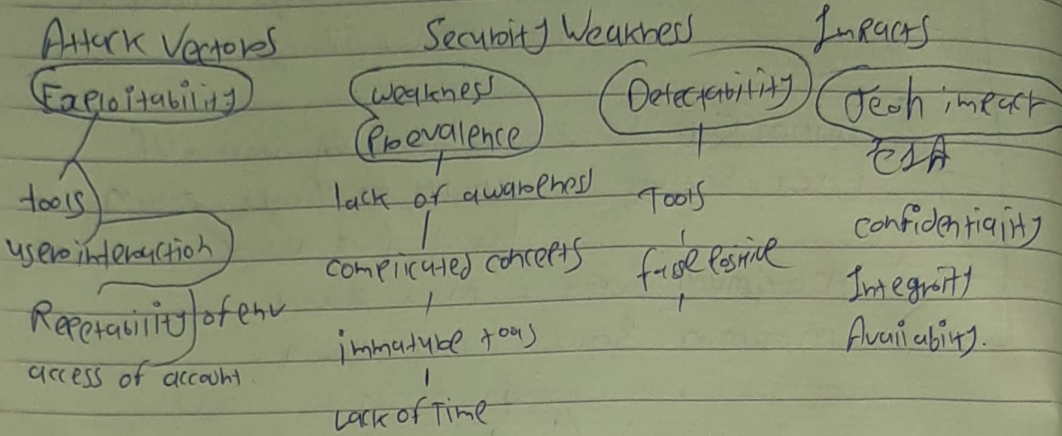 Attack Vectores
Exploitability
tools
user interaction
Repetability of env
access of account.
Security Weakness
Weakness
Prevalence
lack of awareness
complicated concepts
immature tools
Lack of Time
Detectability
Tools
false Positive
Impacts
Tech impact
CIA
Confidentiality
Integrity
Availability.